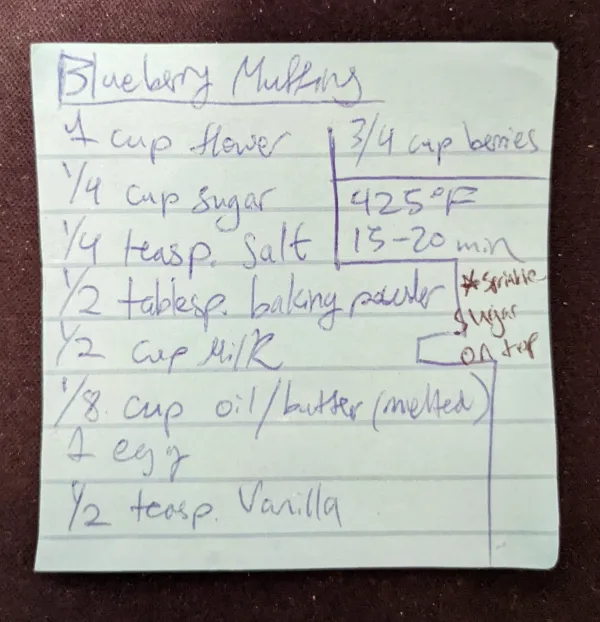 Blueberry Muffins
1 cup flower
1/4 cup sugar
1/4 teasp. salt
1/2 tablesp. baking powder
1/2 cup Milk
1/8 cup oil/butter (melted)
1 egg
1/2 teasp. Vanilla
3/4 cup berries
425°F
15-20 min
*sprinkle
sugar
on top